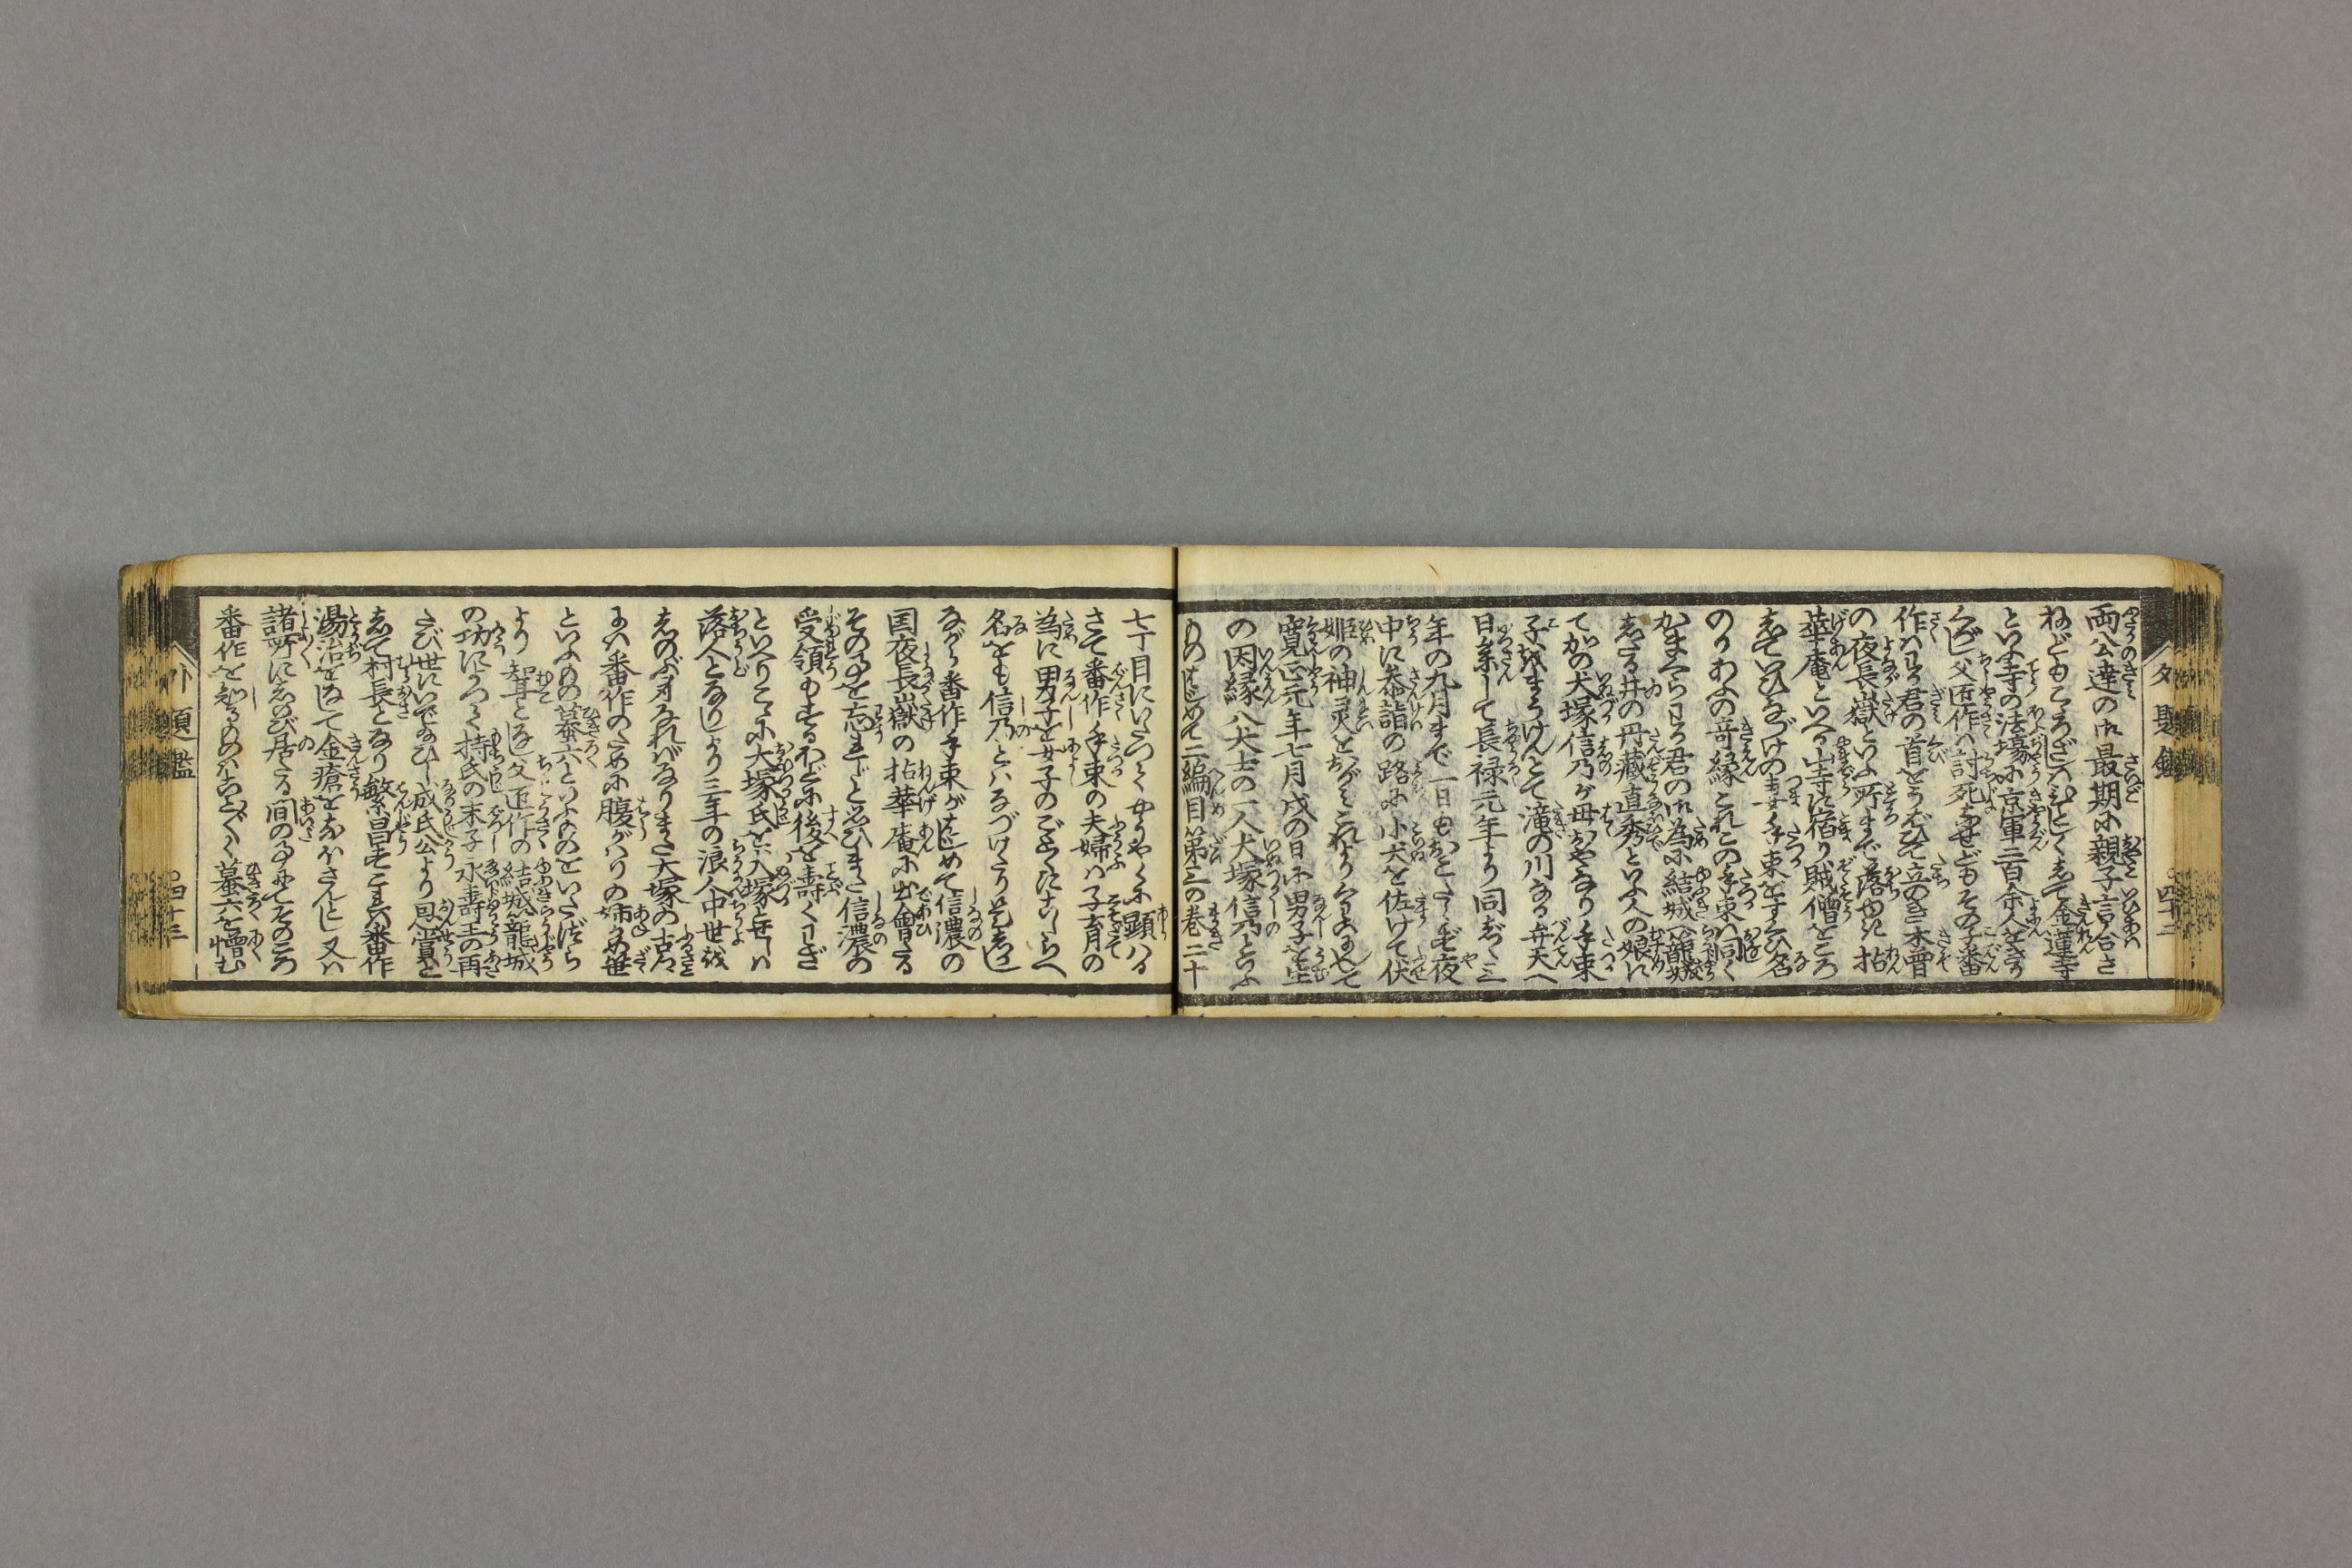 両公達の御最期に親子言合さ
ねどもこゝろざしハひとしくして金蓮寺
といふ寺の法場に京軍二百余人を
父匠作ハ討死せどもその子番
作ハ君の首をうばひて立のき木曽
の夜長嶽といふ所まで落ゆき拈
華庵といへる山寺に宿り賊僧をころ
していひなづけの妻手束をすくひ名
のりあふの奇縁これこの手束ハ同く
君の御為に結城に篭城
したる井の丹蔵直秀といふ人の娘に
てかの犬塚信乃が母おやなり手束
子をまうけんとて滝の川なる弁天へ
日参して長禄元年より同じく三
年の九月まで一日もおこたらず夜
中に参詣の路に小犬を佐けて伏
姫の神灵を
寛正元年七月戊の日に男子を生
の因縁八犬士の一人犬塚信乃といふ
ものはじめて二編目第三の巻二十
七丁目にいたつてやうやくに顕ハる
さて番作手束の夫婦ハ子育の
為に男子を女子のごとくにこしらへ
名をも信乃とハなづけたり是しかし
ながら番作手束がはじめて信濃の
国夜長嶽の拈華庵に出會たる
その事を忘れじと思ひまた信濃の
受領もするほどに後を壽くわざ
といへりこゝに大塚氏を犬塚とせしハ
落人となりしより三年の浪人中世を
しのぶ身なればなりまた大塚の古郷
にハ番作のために腹がハりの姉の
といふもの蟇六といふものをいたづら
より聟となし父匠作の結城篭城
の功によつて持氏の末子永壽王の再
たび世にいでたまひし成氏公より恩賞を
して村長となり繁昌す番作
湯治をして金瘡をなほさんとし又ハ
諸所にしのび居たる間の事にてそのころ
番作を知るものハことごとく蟇六を憎む
外題鑑
四十二
外題鑑
四十三